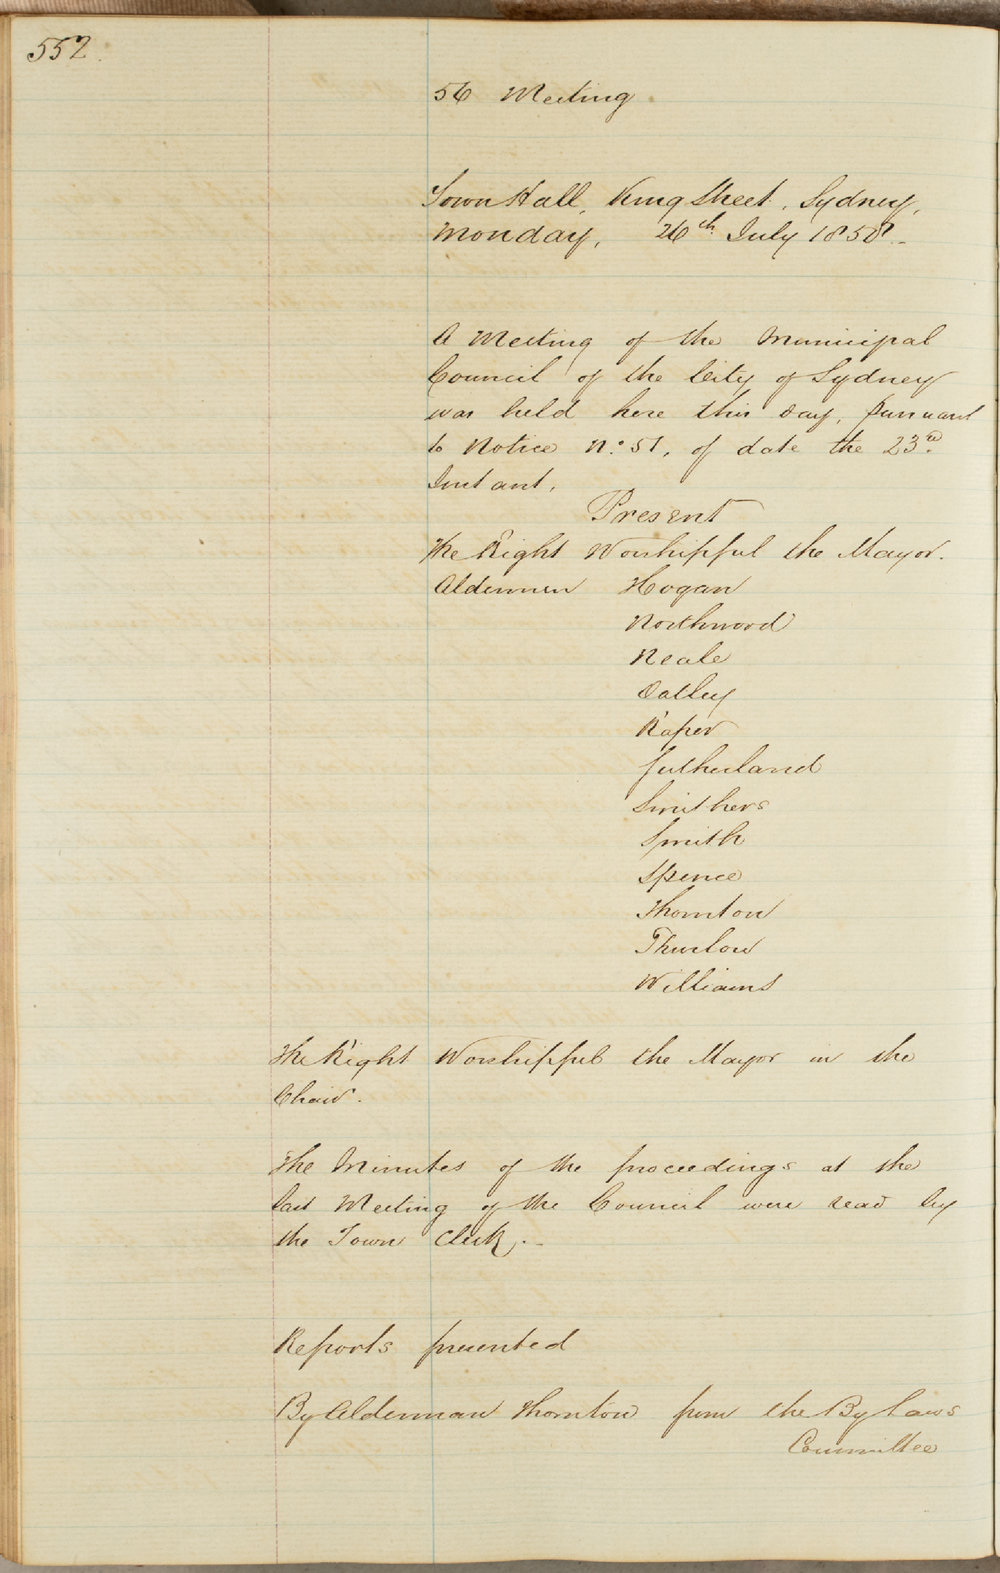 552.
56 Meeting.
Town Hall, King Street, Sydney,
Monday, 26th July 1858.
A Meeting of the Municipal
Council of the City of Sydney
was held here this day, pursuant
to Notice No. 51, of date the 23rd
Instant.
Present
The Right Worshipful the Mayor.
Aldermen Hogan
Northwood
Neale
Oatley
Raper
Sutherland
Smithers
Smith
Spence
Thornton
Thurlow
Williams
The Right Worshipful the Mayor in the
Chair.
The Minutes of the proceedings at the
last Meeting of the Council were read by
the Town Clerk.
Reports presented
By Alderman Thornton from the By Laws
Committee